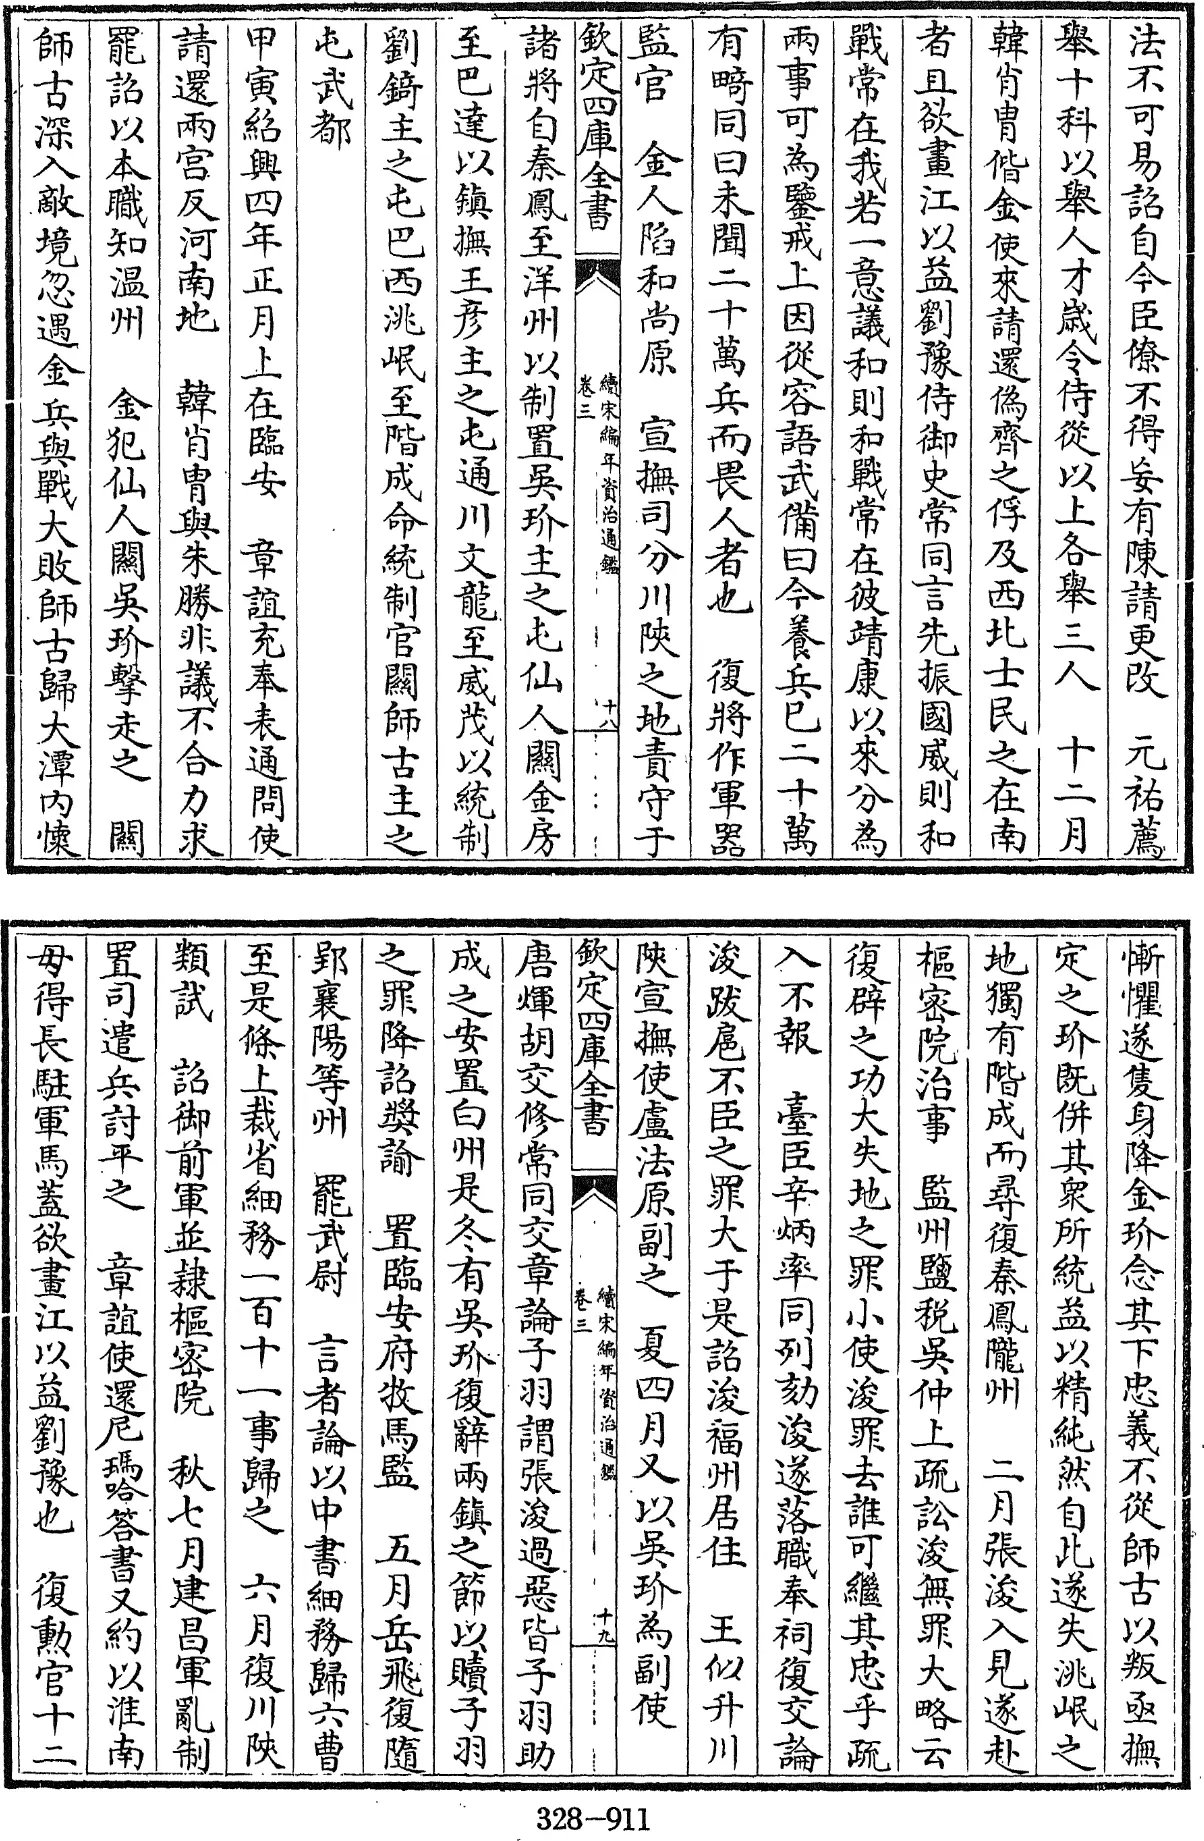 法不可易詔自今臣僚不得妄有陳請更改　元祐薦
舉十科以舉人才嵗令侍從以上各舉三人　十二月
韓肖胄偕金使來請還僞齊之俘及西北士民之在南
者且欲畫江以益劉豫侍御史常同言先振國威則和
戰常在我若一意議和則和戰常在彼靖康以來分為
兩事可為鑒戒上因從容語武備曰今養兵已二十萬
有畸同曰未聞二十萬兵而畏人者也　復將作軍器
監官　金人陷和尚原　宣撫司分川陜之地責守于
欽定四庫全書
續宋編年資治通鑑
卷三
十八
諸將自秦鳳至洋州以制置吳玠主之屯仙人關金房
至巴達以鎮撫王彦主之屯通川文龍至威茂以統制
劉錡主之屯巴西洮岷至階成命統制官關師古主之
屯武都
甲寅紹興四年正月上在臨安　章誼充奉表通問使
請還兩宫反河南地　韓肖胄與朱勝非議不合力求
罷詔以本職知温州　金犯仙人關吳玠擊走之　關
師古深入敵境忽遇金兵與戰大敗師古歸大潭内懐
慚懼遂隻身降金玠念其下忠義不從師古以叛亟撫
定之玠既併其衆所統益以精純然自此遂失洮岷之
地獨有階成而尋復秦鳳隴州　二月張浚入見遂赴
樞密院治事　監州鹽税吳伸上疏訟浚無罪大略云
復辟之功大失地之罪小使浚罪去誰可繼其忠乎疏
入不報　臺臣辛炳率同列劾浚遂落職奉祠復交論
浚跋扈不臣之罪大于是詔浚福州居住　王似升川
陜宣撫使盧法原副之　夏四月又以吳玠為副使
欽定四庫全書
續宋編年資治通鑑
卷三
十九
唐煇胡交修常同交章論子羽謂張浚過惡皆子羽助
成之安置白州是冬有吳玠復辭兩鎮之節以贖子羽
之罪降詔奬諭　置臨安府牧馬監　五月岳飛復隨
郢襄陽等州　罷武尉　言者論以中書細務歸六曹
至是條上裁省細務一百十一事歸之　六月復川陜
類試　詔御前軍並隸樞密院　秋七月建昌軍亂制
置司遣兵討平之　章誼使還尼瑪哈答書又約以淮南
毋得長駐軍馬蓋欲畫江以益劉豫也　復勲官十二
328—911